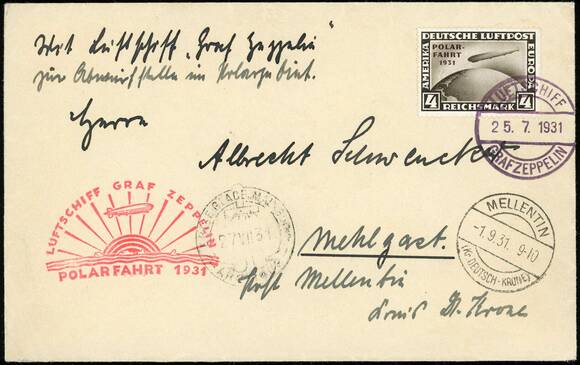 Mit Luftschiff „Graf Zeppelin“
zur Abwurfstelle im Polargebiet.
Herrn
Albrecht Schwencke
Mehlgast.
Post Mellentin
Kreis D. Krone
DEUTSCHE LUFTPOST
POLAR-
FAHRT
1931
AMERIKA
EUROPA
4 REICHSMARK 4
LUFTSCHIFF
25.7.1931
GRAF ZEPPELIN
LUFTSCHIFF GRAF ZEPPELIN
POLARFAHRT 1931
MELLENTIN
-1.9.31. 9-10
(Kr. DEUTSCH-KRONE)